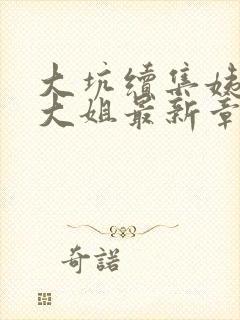 大坑續集姊
大姐最新章
奇諾